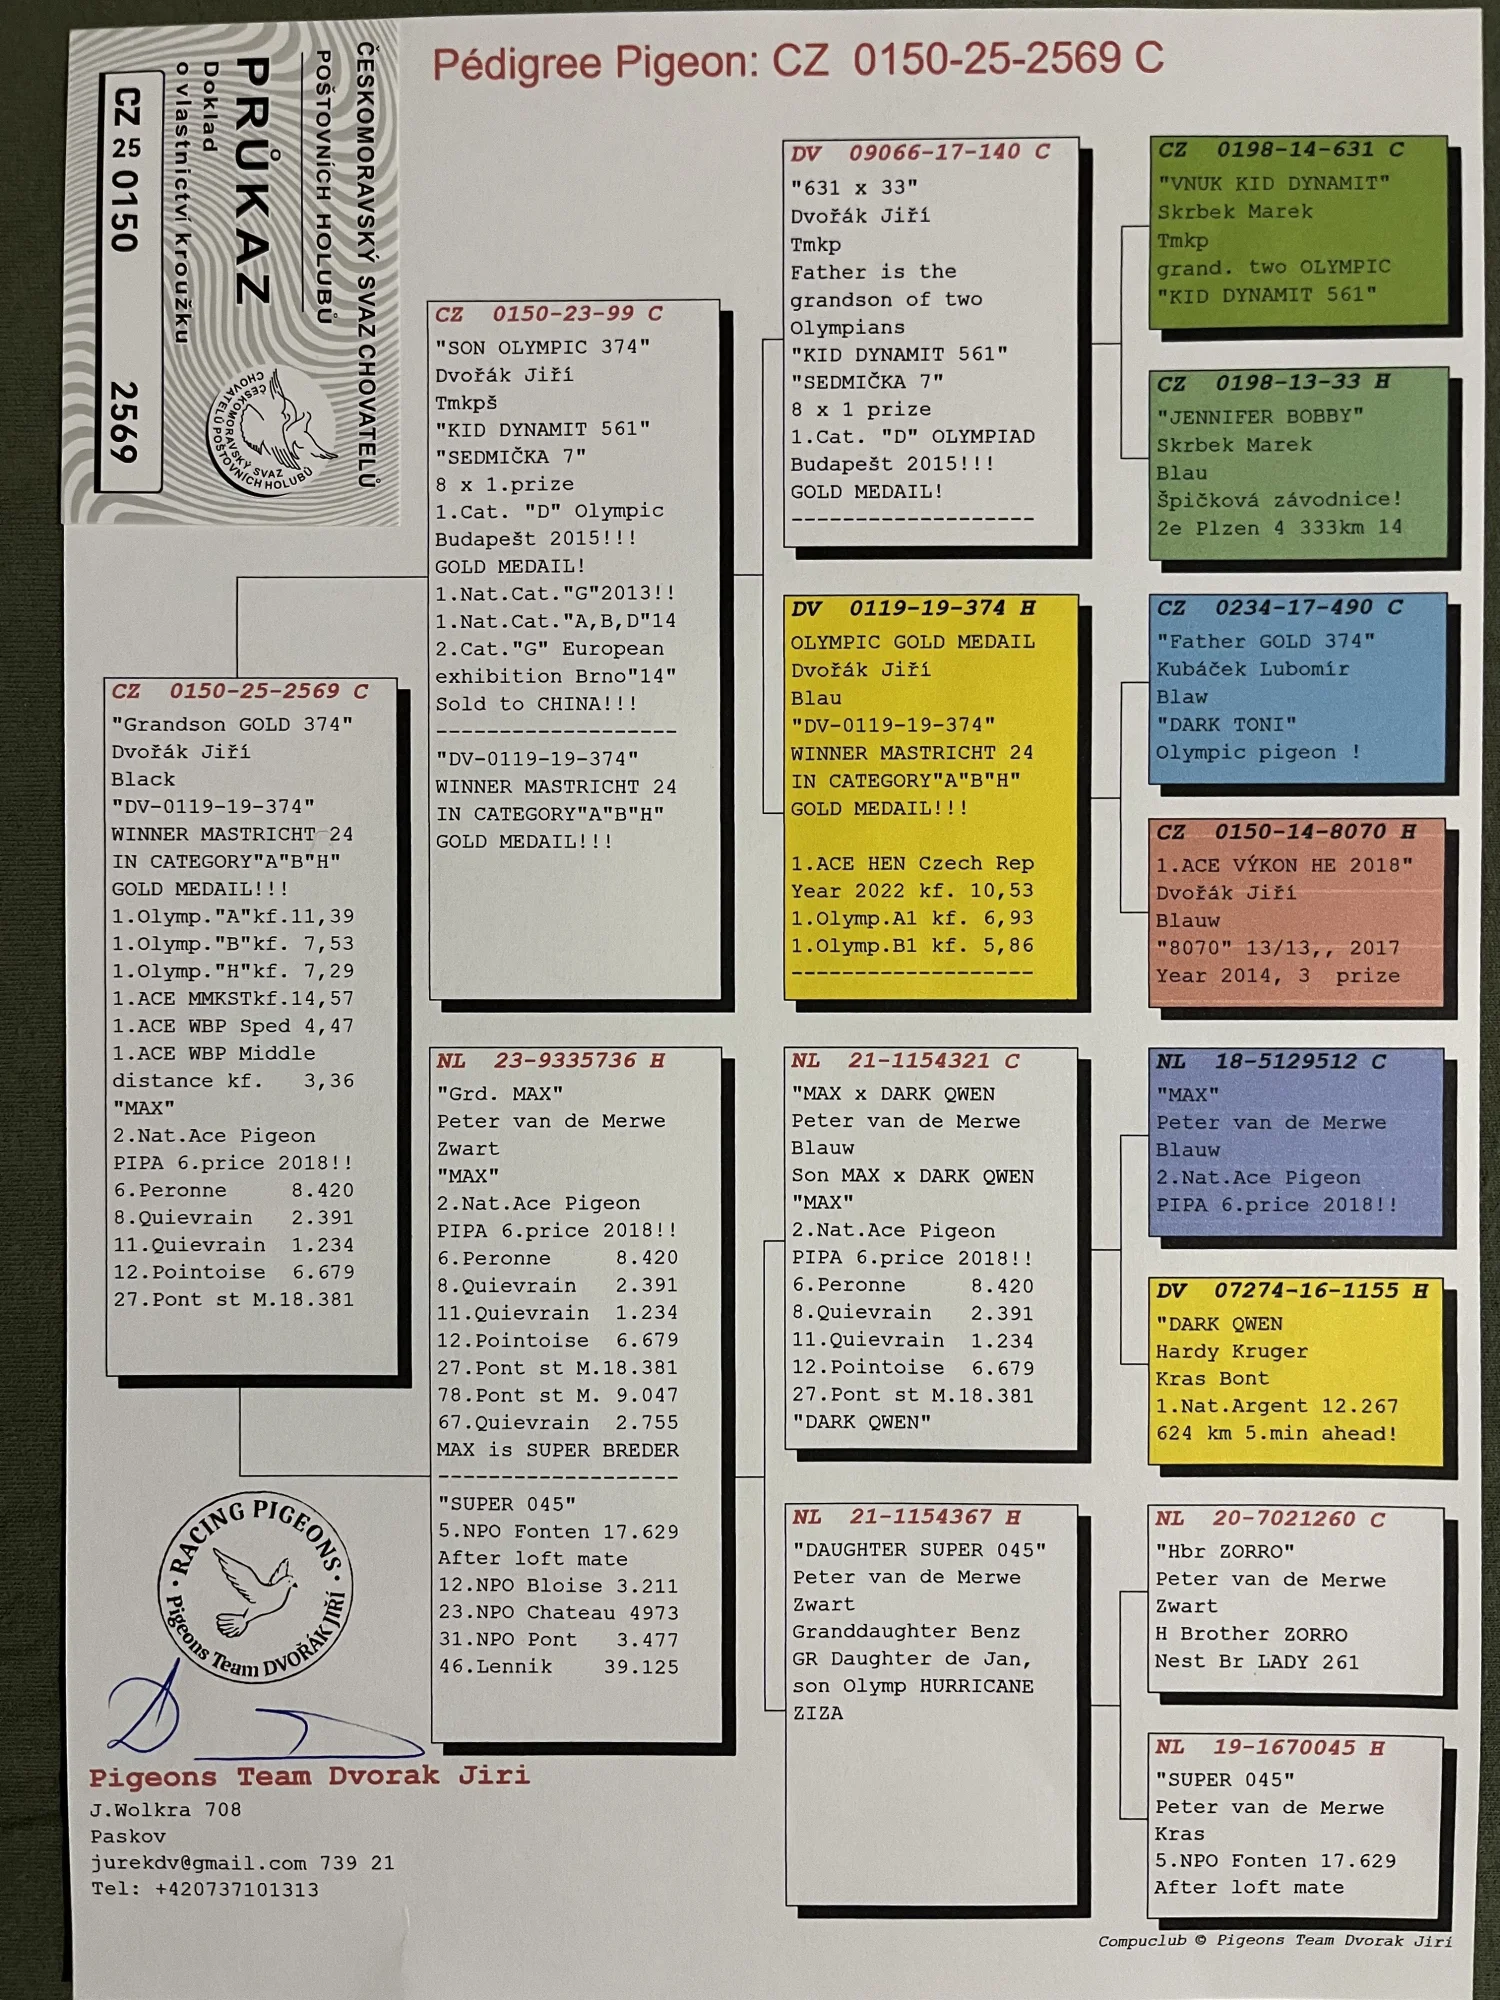 Pédigree Pigeon: CZ 0150-25-2569 C
ČESKOMORAVSKÝ SVAZ CHOVATELŮ
POŠTOVNÍCH HOLUBŮ
PRŮKAZ
Doklad
o vlastnictví kroužku
CZ 25 0150 2569
ČESKOMORAVSKÝ SVAZ
CHOVATELŮ POŠTOVNÍCH HOLUBŮ
CZ 0150-25-2569 C
"Grandson GOLD 374"
Dvořák Jiří
Black
"DV-0119-19-374"
WINNER MASTRICHT 24
IN CATEGORY"A"B"H"
GOLD MEDAIL!!!
1.Olymp."A"kf.11,39
1.Olymp."B"kf. 7,53
1.Olymp."H"kf. 7,29
1.ACE MMKSTkf.14,57
1.ACE WBP Sped 4,47
1.ACE WBP Middle
distance kf. 3,36
"MAX"
2.Nat.Ace Pigeon
PIPA 6.price 2018!!
6.Peronne 8.420
8.Quievrain 2.391
11.Quievrain 1.234
12.Pointoise 6.679
27.Pont st M.18.381
CZ 0150-23-99 C
"SON OLYMPIC 374"
Dvořák Jiří
Tmkpš
"KID DYNAMIT 561"
"SEDMIČKA 7"
8 x 1.prize
1.Cat. "D" Olympic
Budapešt 2015!!!
GOLD MEDAIL!
1.Nat.Cat."G"2013!!
1.Nat.Cat."A,B,D"14
2.Cat."G" European
exhibition Brno"14"
Sold to CHINA!!!
-------------------
"DV-0119-19-374"
WINNER MASTRICHT 24
IN CATEGORY"A"B"H"
GOLD MEDAIL!!!
NL 23-9335736 H
"Grd. MAX"
Peter van de Merwe
Zwart
"MAX"
2.Nat.Ace Pigeon
PIPA 6.price 2018!!
6.Peronne 8.420
8.Quievrain 2.391
11.Quievrain 1.234
12.Pointoise 6.679
27.Pont st M.18.381
78.Pont st M. 9.047
67.Quievrain 2.755
MAX is SUPER BREDER
-------------------
"SUPER 045"
5.NPO Fonten 17.629
After loft mate
12.NPO Bloise 3.211
23.NPO Chateau 4973
31.NPO Pont 3.477
46.Lennik 39.125
DV 09066-17-140 C
"631 x 33"
Dvořák Jiří
Tmkp
Father is the
grandson of two
Olympians
"KID DYNAMIT 561"
"SEDMIČKA 7"
8 x 1 prize
1.Cat. "D" OLYMPIAD
Budapešt 2015!!!
GOLD MEDAIL!
-------------------
DV 0119-19-374 H
OLYMPIC GOLD MEDAIL
Dvořák Jiří
Blau
"DV-0119-19-374"
WINNER MASTRICHT 24
IN CATEGORY"A"B"H"
GOLD MEDAIL!!!
1.ACE HEN Czech Rep
Year 2022 kf. 10,53
1.Olymp.A1 kf. 6,93
1.Olymp.B1 kf. 5,86
-------------------
NL 21-1154321 C
"MAX x DARK QWEN
Peter van de Merwe
Blauw
Son MAX x DARK QWEN
"MAX"
2.Nat.Ace Pigeon
PIPA 6.price 2018!!
6.Peronne 8.420
8.Quievrain 2.391
11.Quievrain 1.234
12.Pointoise 6.679
27.Pont st M.18.381
"DARK QWEN"
NL 21-1154367 H
"DAUGHTER SUPER 045"
Peter van de Merwe
Zwart
Granddaughter Benz
GR Daughter de Jan,
son Olymp HURRICANE
ZIZA
CZ 0198-14-631 C
"VNUK KID DYNAMIT"
Skrbek Marek
Tmkp
grand. two OLYMPIC
"KID DYNAMIT 561"
CZ 0198-13-33 H
"JENNIFER BOBBY"
Skrbek Marek
Blau
Špičková závodnice!
2e Plzen 4 333km 14
CZ 0234-17-490 C
"Father GOLD 374"
Kubáček Lubomír
Blaw
"DARK TONI"
Olympic pigeon !
CZ 0150-14-8070 H
1.ACE VÝKON HE 2018"
Dvořák Jiří
Blauw
"8070" 13/13,, 2017
Year 2014, 3 prize
NL 18-5129512 C
"MAX"
Peter van de Merwe
Blauw
2.Nat.Ace Pigeon
PIPA 6.price 2018!!
DV 07274-16-1155 H
"DARK QWEN
Hardy Kruger
Kras Bont
1.Nat.Argent 12.267
624 km 5.min ahead!
NL 20-7021260 C
"Hbr ZORRO"
Peter van de Merwe
Zwart
H Brother ZORRO
Nest Br LADY 261
NL 19-1670045 H
"SUPER 045"
Peter van de Merwe
Kras
5.NPO Fonten 17.629
After loft mate
RACING PIGEONS
Pigeons Team DVOŘÁK JIŘÍ
Pigeons Team Dvorak Jiri
J.Wolkra 708
Paskov
jurekdv@gmail.com 739 21
Tel: +420737101313
Compuclub © Pigeons Team Dvorak Jiri